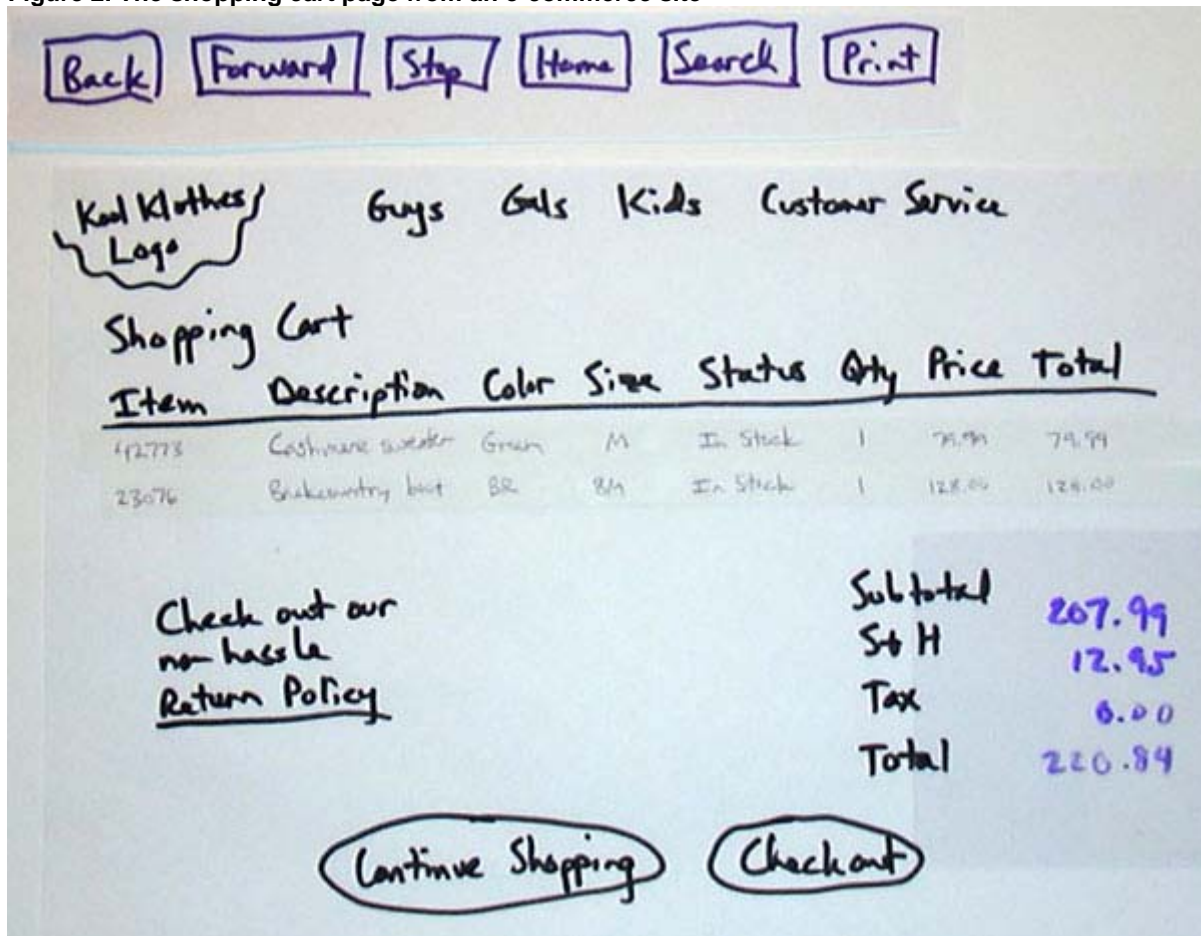 Figure 2. The shopping cart page from an e-commerce site
Back Forward Stop Home Search Print
Kool Klothes Guys Gals Kids Customer Service
Logo
Shopping Cart
Item Description Color Size Status Qty Price Total
42773 Cashmere sweater Green M In Stock 1 79.99 79.99
23076 Backcountry boot BR 8M In Stock 1 128.00 128.00
Check out our
no-hassle
Return Policy
Subtotal 207.99
S+H 12.95
Tax 0.00
Total 220.84
Continue Shopping Checkout